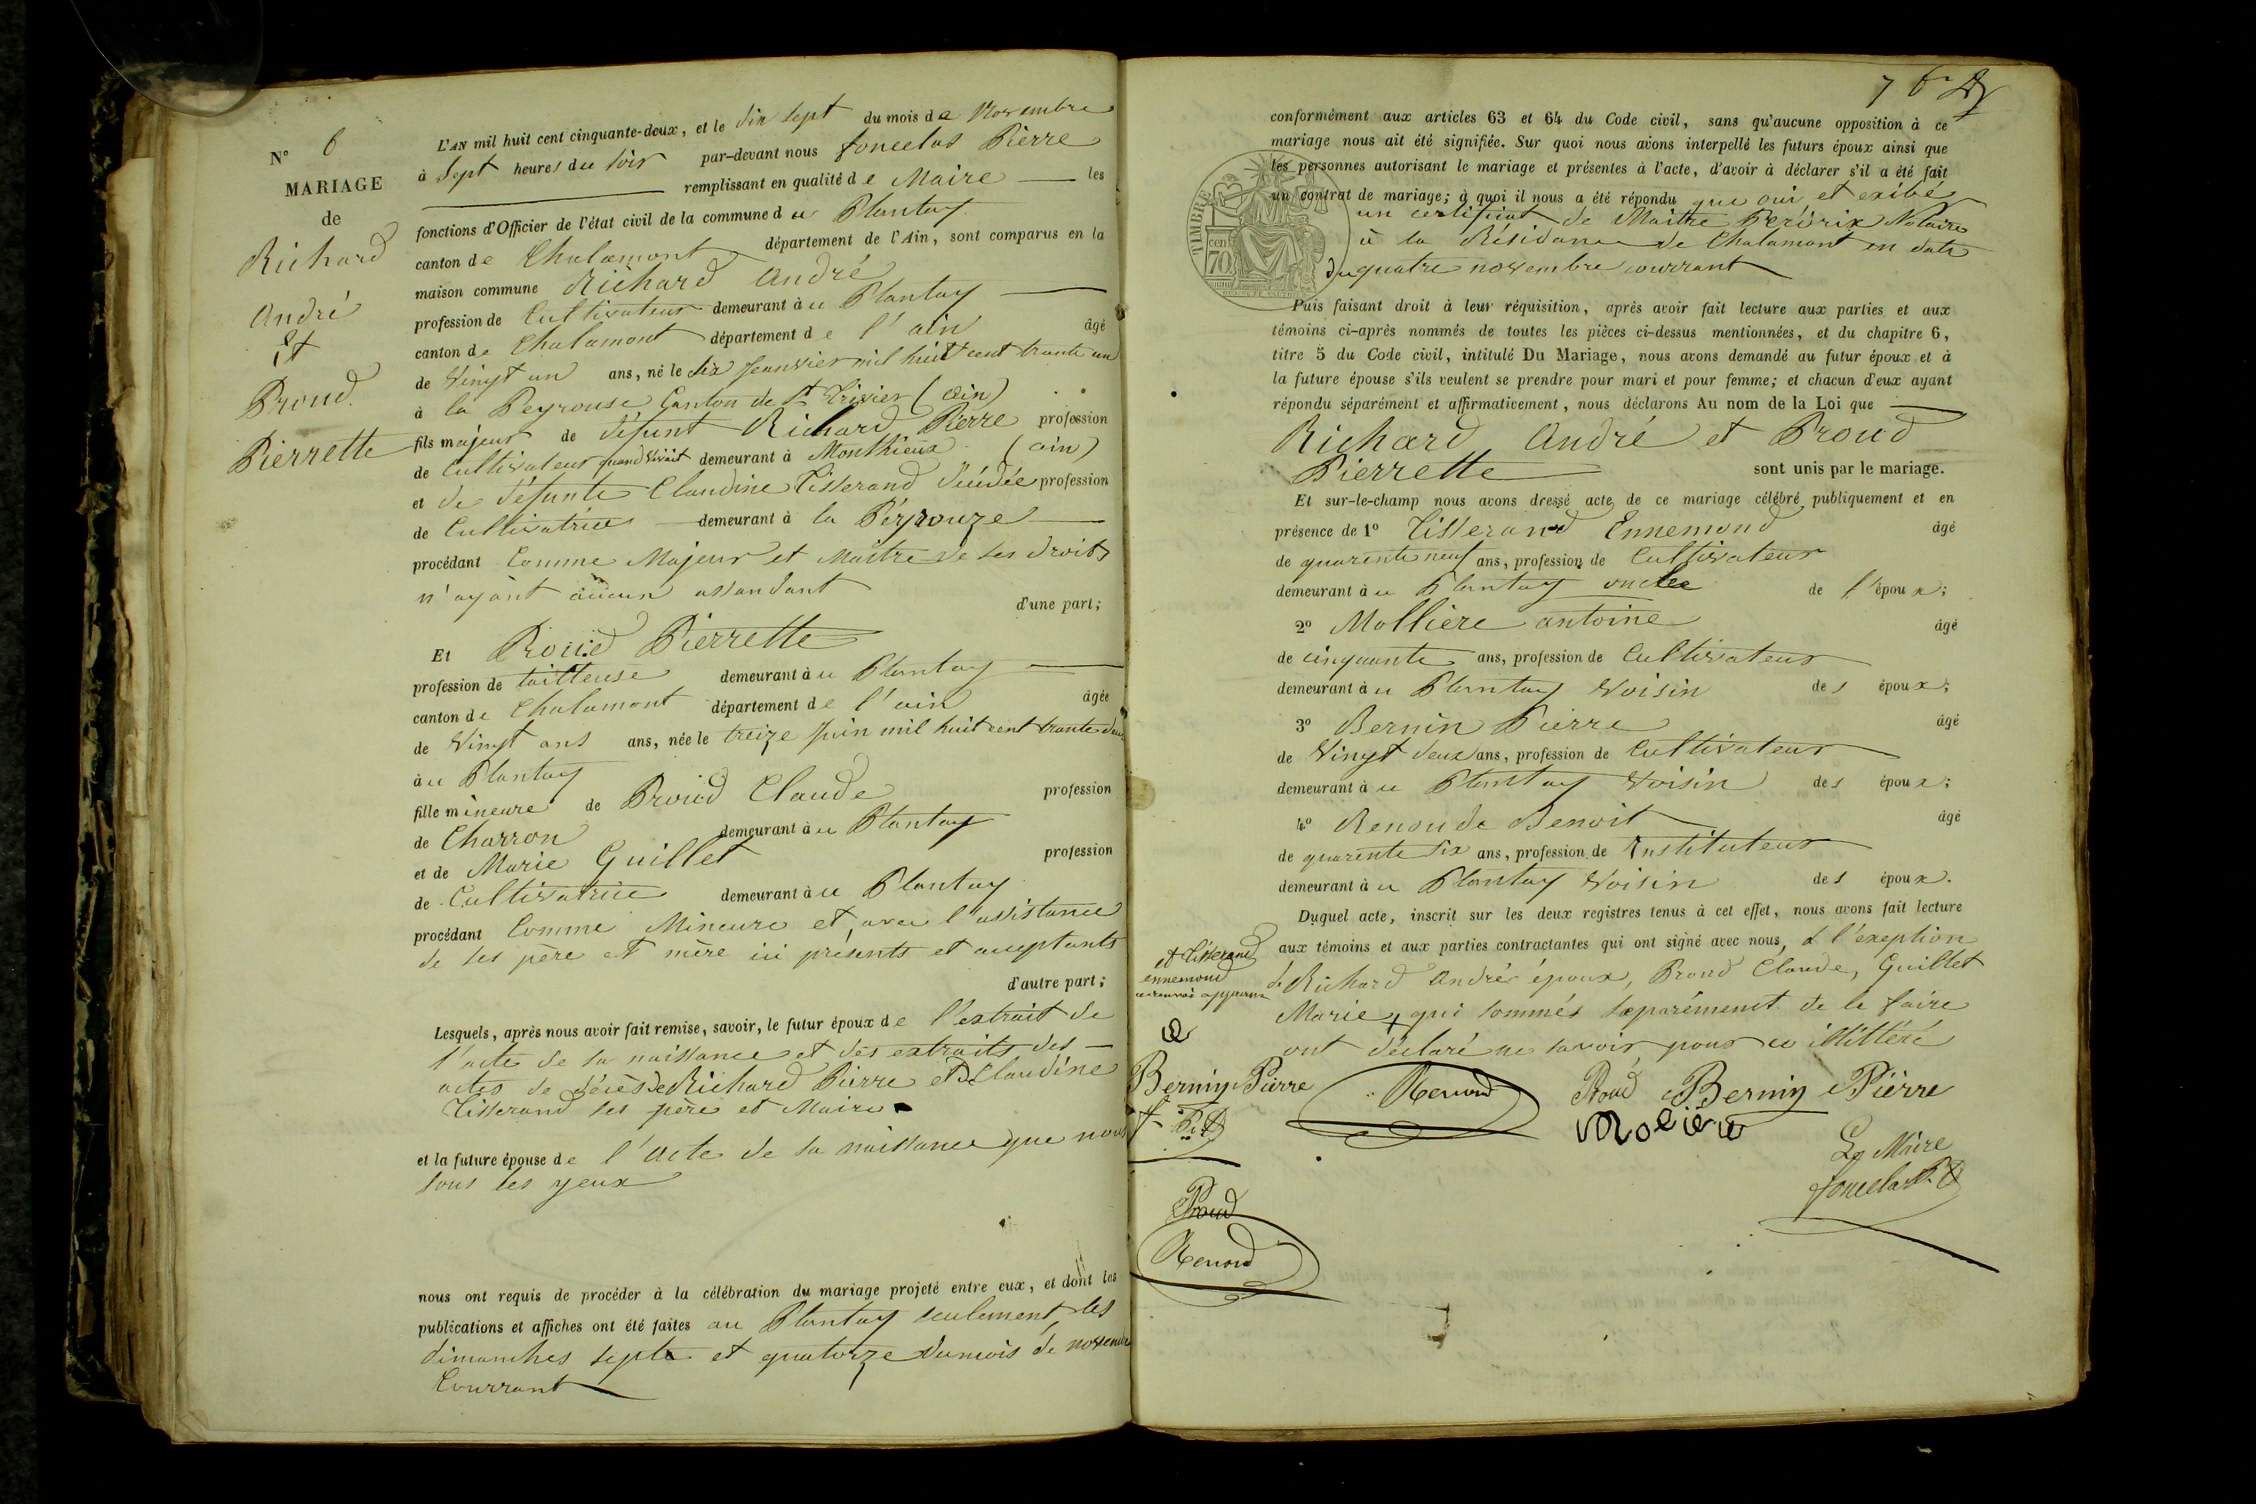 N° 6
MARIAGE
de
Richard
André
Et
Proud
Pierrette
L'AN mil huit cent cinquante-deux, et le dix sept du mois de Novembre
à Sept heures du soir par-devant nous Pierre
remplissant en qualité de Maire les
fonctions d'Officier de l'état civil de la commune du Plantay
canton de Chalamont département de l'Ain, sont comparus en la
maison commune Richard André
profession de Cultivateur demeurant au Plantay
canton de Chalamont département de l'ain âgé
de Vingt un ans, né le dix Jeanvier mil huit cent trante un
à la Peyrouse Canton de St Trivier (ain)
fils majeur de défunt Richard Pierre profession
de Cultivateur quand vivait demeurant à Monthieux (ain)
et de défunte Claudine Tisserand décédée profession
de Cultivatrice demeurant à la Péyrouze
procédant Comme Majeur et Maitre de ses droits
n'ayant aucun assandant
d'une part;
Et Proud Pierrette
profession de tailleuse demeurant au Plantay
canton de Chalamont département de l'ain âgée
de Vingt ans ans, née le treize Juin mil huit cent trante deux
au Plantay
fille mineure de Proud Claude profession
de Charron demeurant au Plantay
et de Marie Guillet profession
de Cultivatrice demeurant au Plantay
procédant Comme Mineure et avec l'assistance
de ses père et mère ici présents et acceptants
d'autre part;
Lesquels, après nous avoir fait remise, savoir, le futur époux de l'extrait de
l'acte de sa naissance et des extraits des
actes de décès de Richard Pierre et de Claudine
Tisserand ses père et Maire
et la future épouse de l'acte de sa naissance que nous
sous les yeux
nous ont requis de procéder à la célébration du mariage projeté entre eux, et dont les
publications et affiches ont été faites au Plantay seulement les
dimanches septe et quatorze du mois de novembre
Courrant
7
conformément aux articles 63 et 64 du Code civil, sans qu'aucune opposition à ce
mariage nous ait été signifiée. Sur quoi nous avons interpellé les futurs époux ainsi que
les personnes autorisant le mariage et présentes à l'acte, d'avoir à déclarer s'il a été fait
un contrat de mariage; à quoi il nous a été répondu que oui et exibé
un certificat de Maitre Notaire
à la Résidance de Chalamont en date
du quatre novembre courrant
TIMBRE
cent
70
Puis faisant droit à leur réquisition, après avoir fait lecture aux parties et aux
témoins ci-après nommés de toutes les pièces ci-dessus mentionnées, et du chapitre 6,
titre 5 du Code civil, intitulé Du Mariage, nous avons demandé au futur époux et à
la future épouse s'ils veulent se prendre pour mari et pour femme; et chacun d'eux ayant
répondu séparément et affirmativement, nous déclarons Au nom de la Loi que
Richard André et Proud
Pierrette sont unis par le mariage.
Et sur-le-champ nous avons dressé acte de ce mariage célébré publiquement et en
présence de 1° Tisserand Ennemond âgé
de quarente neuf ans, profession de Cultivateur
demeurant au Plantay oncle de l'époux;
2° Mollière antoine âgé
de cinquante ans, profession de Cultivateur
demeurant au Plantay Voisin des époux;
3° Bernin Pierre âgé
de Vingt deux ans, profession de Cultivateur
demeurant au Plantay Voisin des époux;
4° Renoud Benoit âgé
de quarente six ans, profession de Instituteur
demeurant au Plantay Voisin des époux.
Duquel acte, inscrit sur les deux registres tenus à cet effet, nous avons fait lecture
aux témoins et aux parties contractantes qui ont signé avec nous, à l'exeption
de Richard André époux, Proud Claude, Guillet
Marie, qui sommés séparément de le faire
ont déclaré ne savoir pour ce illittéré
et Tisserand
ennemond
Bernin Pierre
Proud
Renoud
Renoud Proud Bernin Pierre
Moliere
Le Maire